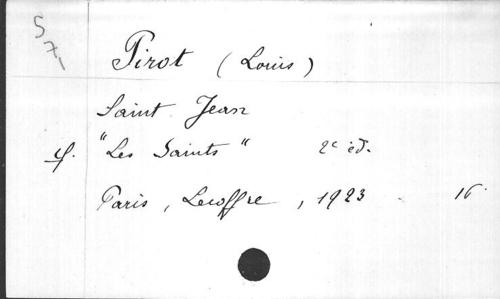 S
71
Pirot (Louis)
Saint Jean
cf. "Les Saints" 2e éd.
Paris, Lecoffre, 1923 16